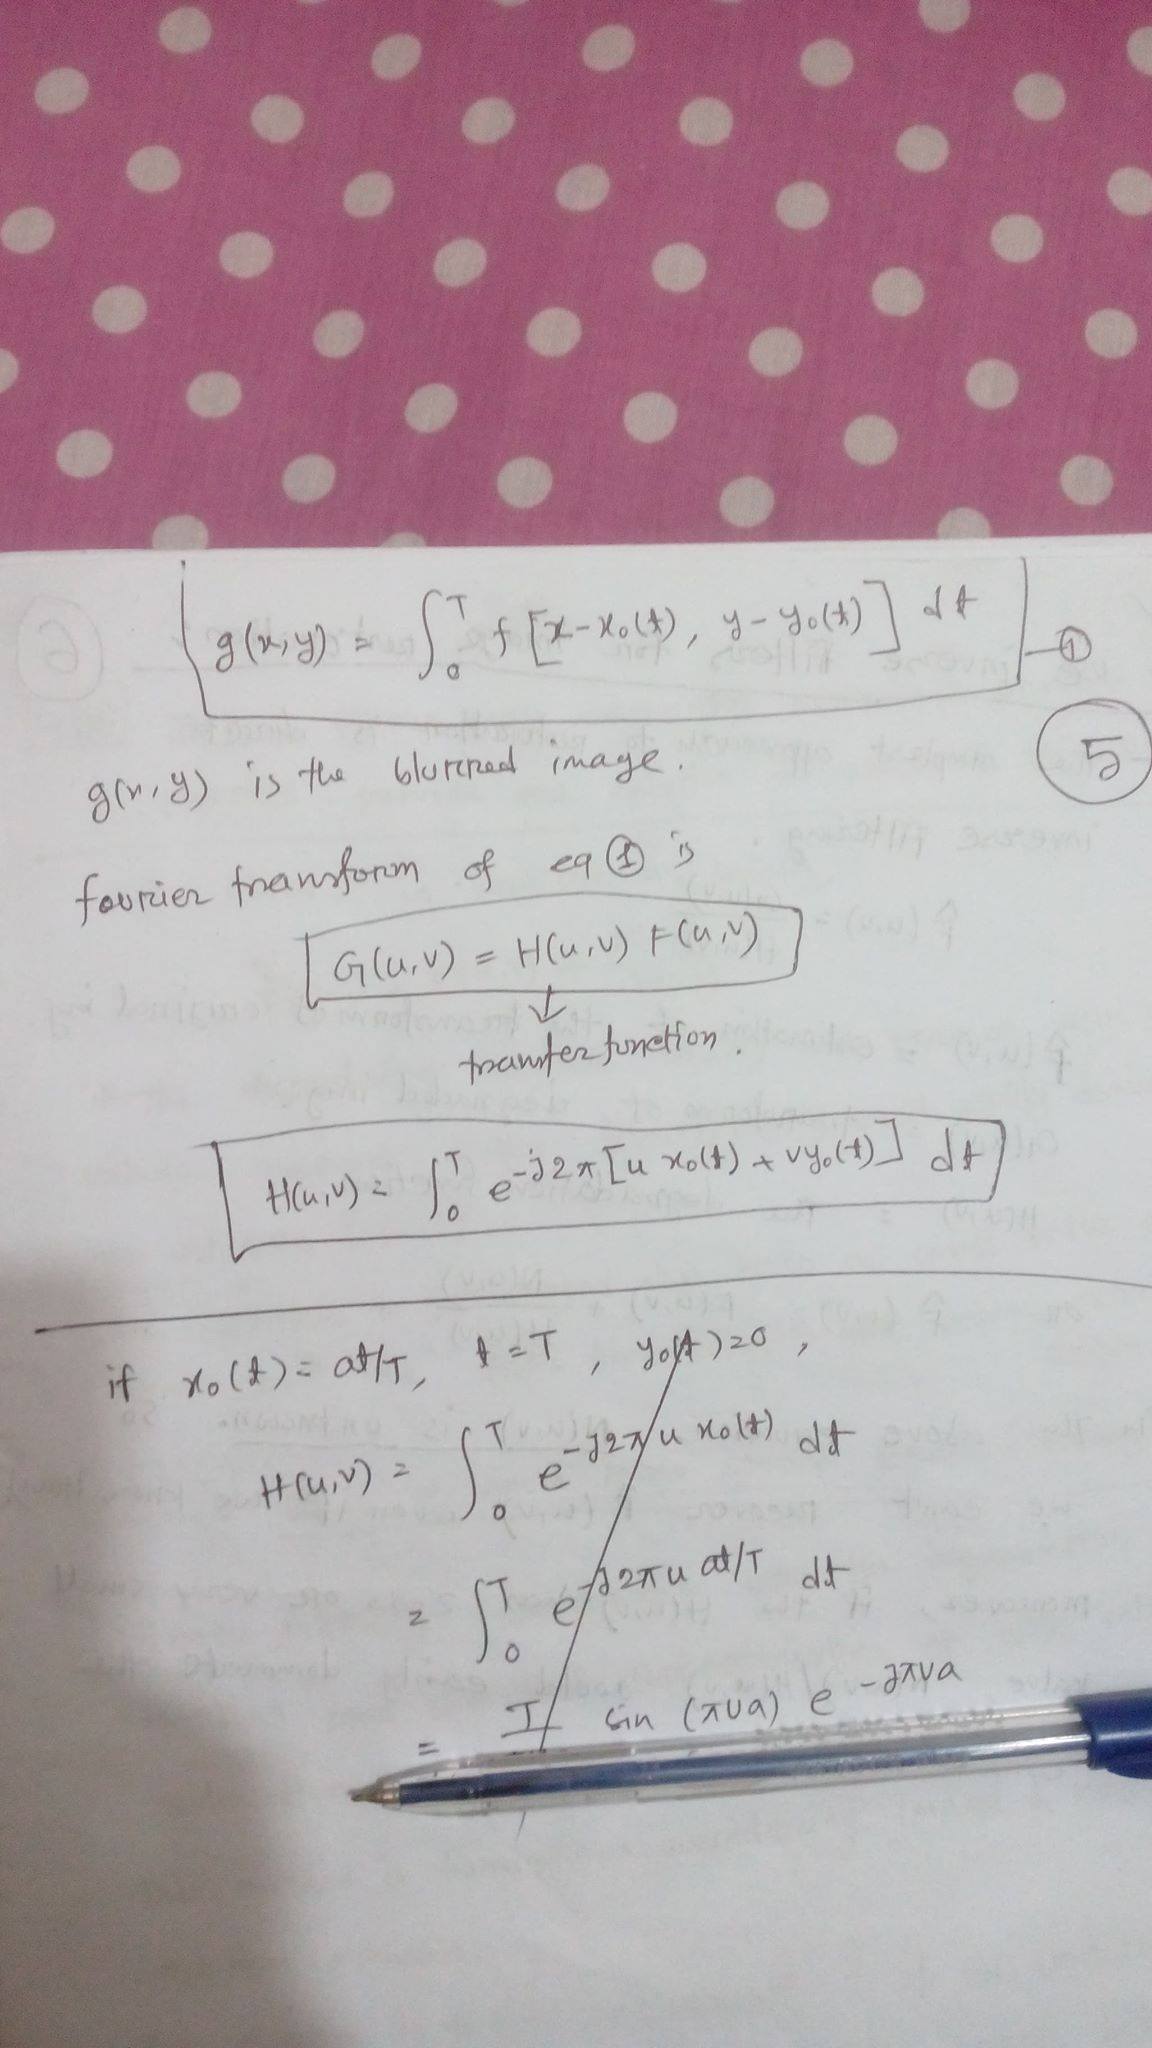 g(x,y) = ∫₀ᵀ f [x-x₀(t), y-y₀(t)] dt — ①
⑤
g(x,y) is the blurred image.
fourier transform of eq ① is
G(u,v) = H(u,v) F(u,v)
↓
transfer function.
H(u,v) = ∫₀ᵀ e^{-j2π[u x₀(t) + vy₀(t)]} dt
if x₀(t) = at/T, t = T, y₀(t) = 0,
H(u,v) = ∫₀ᵀ e^{-j2πu x₀(t)} dt
= ∫₀ᵀ e^{-j2πu at/T} dt
= T sin (πua) e^{-jπua}